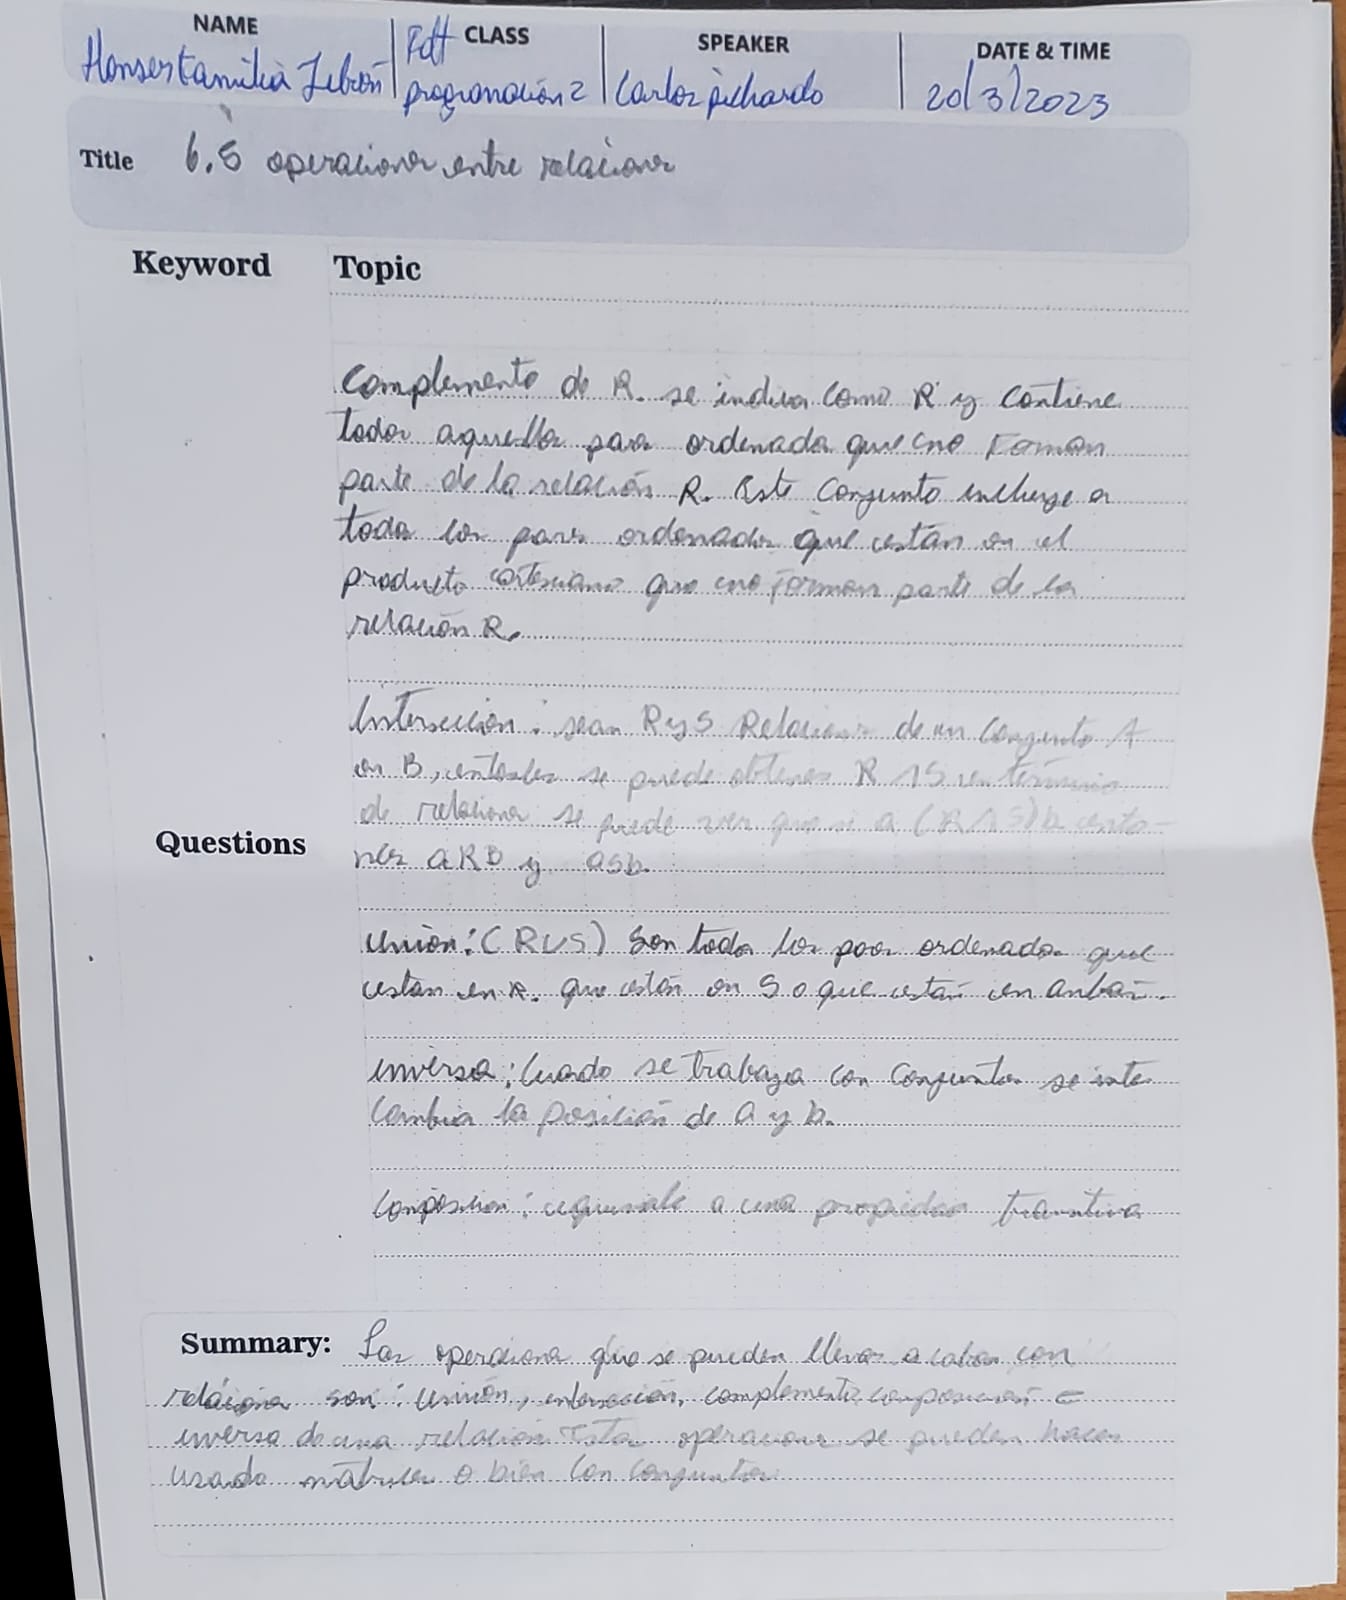 NAME CLASS SPEAKER DATE & TIME
Familia Lebrón programación 2 Carlos pichardo 20/3/2023
Title 6.5 operaciones entre relaciones
Keyword Topic
Complemento de R. se indica como R' y contiene
todos aquellos pares ordenados que no forman
parte de la relación R. Este conjunto incluye a
todos los pares ordenados que están en el
producto cartesiano que no forman parte de la
relación R.
Intersección: sean R y S Relaciones de un conjunto A
en B, entonces se puede obtener R ∩ S en término
de relaciones se puede ver que si a (R∩S) b ento-
Questions nces aRb y asb.
Unión: (RUS) Son todos los pares ordenados que
estan en R. que están en S o que están en
inversa; Cuando se trabaja con conjuntos se inter
cambia la posición de a y b.
Composicion: equivale a una propiedad transitiva
Summary: Las operaciones que se pueden llevar a cabo con
relaciones son: Unión, intersección, complemento, composición e
inversa de una relación Estas operaciones se pueden hacer
usado matrices o bien con conjuntos